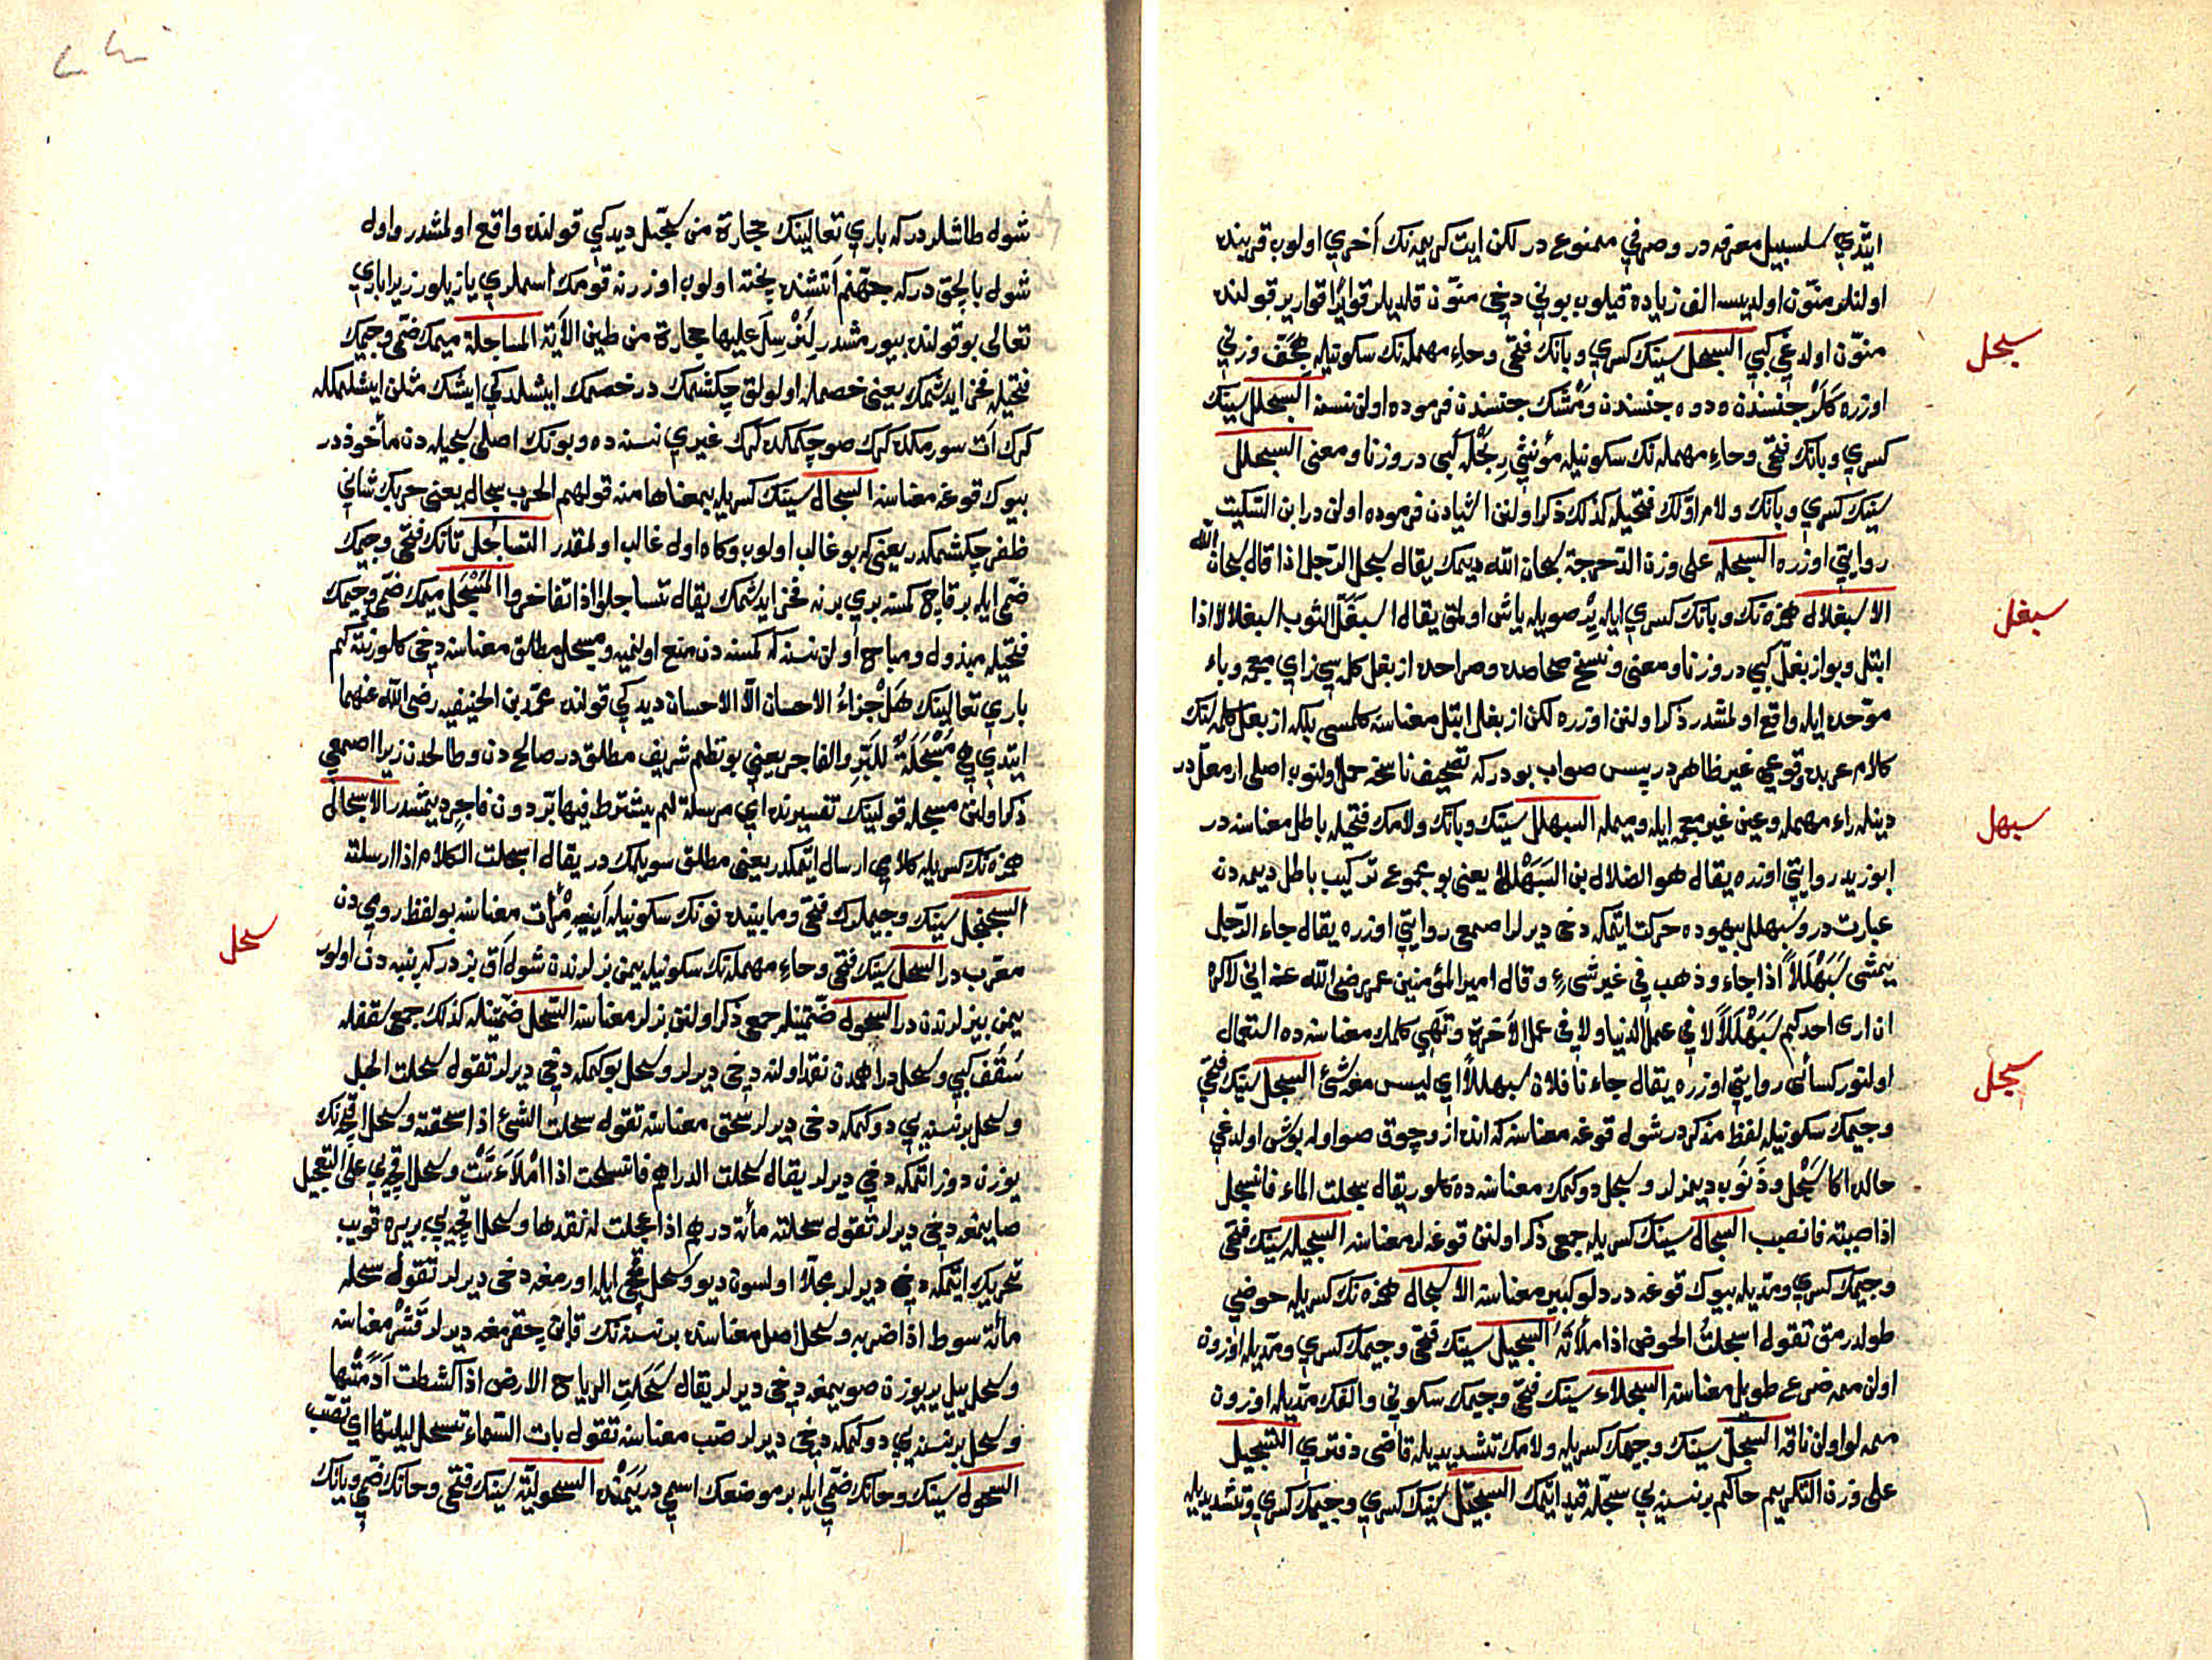 ايتدي سلسبيل معرفه در وصرفي ممنوع در لكن ايت كريمه نك آخري اولوب قرينه
اولنلر منوّن اولديسه الف زياده قيلوب بوني دخي منوّن قلديلر قواريرا قوارير قولنده
منوّن اولدغي كبي السبحل سينك كسري وبانك فتحي وحاء مهمله نك سكونيله هجف وزني
سبحل
اوزره كلر جنسندن ودوه جنسندن ومشك جنسندن فرموده اولن نسنه السبحلل سينك
كسري وبانك فتحي وحاء مهمله نك سكونيله مؤنثي ربحله كبي در وزنا ومعنى السبحلل
سينك كسري وبانك ولام اوّلك فتحيله كذلك ذكر اولنن اشيادن فرموده اولن در ابن السكيت
روايتي اوزره السبحله على وزن الدحرجة سبحان الله ديمك يقال سبحل الرجل اذا قال سبحان الله
الاسبغلال همزه نك وبانك كسري ايله بر صويله ياش اولمق يقال اسبغلّ الثوب اسبغلالا اذا
سبغل
ابتل وبو ازبغلّ كبي در وزنا ومعنى ونسخ صحاحده وصراحده ازبغل كلمه سي زاي معجمه وباء
موحده ايله واقع اولمشدر ذكر اولنن اوزره لكن ازبغل ابتل معناسنه كلمسى بلكه ازبغل كلمه لنك
كلام عربده وقوعي غير ظاهر در پس صواب بودر كه تصحيف ناسخه حمل اولنوب اصلى ارمعلّ در
دينله راء مهمله وعين غير معجمه ايله وميمله السبهلل سينك وبانك ولامك فتحيله باطل معناسنه در
سبهل
ابو زيد روايتي اوزره يقال هو الضلال بن السبهلل يعني بو مجموع تركيب باطل ديمه دن
عبارت در وسبهلل بيهوده حركت ايتمكه دخي ديرلر اصمعي روايتي اوزره يقال جاء الرّجل
يمشى سبهللاً اذا جاء وذهب في غير شىء وقال امير المؤمنين عمر رضي الله عنه اني لاكره
ان ارى احدكم سبهللاً لا في عمل الدنيا ولا في عمل الآخرة وتهي كلمك معناسنه ده استعمال
اولنور كسائى روايتي اوزره يقال جاءنا فلان سبهللاً اي ليس معه شئ السجل سينك فتحي
سجل
وجيمك سكونيله لفظ مذكر در شول قوغه معناسنه كه انده از وچوق صو اوله بوش اولدغي
حالده اكا سجل وذنوب ديمزلر وسجل دوكمك معناسنه ده كلور يقال سجلت الماء فانسجل
اذا صببته فانصب السجال سينك كسريله جمعي ذكر اولنن قوغه لر معناسنه السجيله سينك فتحي
وجيمك كسري ومديله بيوك قوغه در دلو كبير معناسنه الاسجال همزه نك كسريله حوضي
طولدرمق تقول اسجلتُ الحوض اذا ملأته السجيل سينك فتحي وجيمك كسري ومديله اوزون
اولن ممه ضرع طويل معناسنه السجلاء سينك فتحي وجيمك سكوني والفك مديله اوزون
ممه لو اولن ناقه السجلّ سينك وجيمك كسريله ولامك تشديديله قاضى دفتري التسجيل
على وزن التكريم حاكم بر نسنه يي سجلّه قيد ايتمك السجّيل سينك كسري وجيمك كسري وتشديديله
شول طاشلردر كه باري تعالينك حجارة من سجّيل ديدكي قولنده واقع اولمشدر واول
شول بالچق در كه جهنّم آتشنده پخته اولوب اوزرنه قومك اسملري يازيلور زيرا باري
تعالى بو قولنده بيورمشدر لنرسل عليها حجارة من طين الآية المساجلة ميمك ضمّي وجيمك
فتحيله فخر ايدشمك يعني خصمله اولولق چكشمك در خصمك ايشلدكي ايشك مثلن ايشلمكله
كرك آت سورمكده كرك صو چكمكده كرك غيري نسنه ده وبونك اصلى سجيله دن مأخوذ در
بيوك قوغه معناسنه السجال سينك كسريله بمعناها منه قولهم الحرب سجال يعني حربك شاني
ظفر چكشمكدر يعني كه بو غالب اولوب وكاه اول غالب اولمقدر التساجل تانك فتحي وجيمك
ضمّي ايله بر قاچ كمسه بري برنه فخر ايدشمك يقال تساجلوا اذا تفاخروا المسجل ميمك ضمّي وجيمك
فتحيله مبذول ومباح اولن نسنه كه كمسه دن منع اولنميه ومسجل مطلق معناسنه دخي كلور نته كم
باري تعالينك هل جزاء الاحسان الّا الاحسان ديدكي قولنده محمّد بن الحنيفيه رضي الله عنهما
ايتدي هي مسجلة للبرّ والفاجر يعني بو نظم شريف مطلق در صالح دن وطالحدن زيرا اصمعي
ذكر اولنن مسجله قولينك تفسيرنده اي مرسلة لم يشترط فيها برّ دون فاجر ديمشدر الاسجال
همزه نك كسريله كلامي ارسال ايتمكدر يعني مطلق سويلمك در يقال اسجلت الكلام اذا ارسلته
السجنجل سينك وجيملرك فتحي ومابينده نونك سكونيله آينه مرآت معناسنه بو لفظ رومي دن
سحل
معرّب در السحل سينك فتحي وحاء مهمله نك سكونيله يمن بزلرندن شول آق بز در كه پنبه دن اولور
يمن بيزلرندن در السحول ضمّتينله جمعي ذكر اولنن بزلر معناسنه السّحل ضمّتينله كذلك جمعي سقفله
سقف كبي وسحل دراهمدن نقد اولنه دخي ديرلر وسحل بوكمكه دخي ديرلر تقول سحلت الحبل
وسحل بر نسنه يي دوكمكه دخي ديرلر سحق معناسنه تقول سحلت الشئ اذا سحقته وسحل اقچه نك
يوزن دوز ايتمكه دخي ديرلر يقال سحلت الدراهم فانسحلت اذا املاسّت وسحل اقچه يي على التعجيل
صايمغه دخي ديرلر تقول سحلته مأة درهم اذا عجلت له نقدها وسحل اقچه يي بر يره قويب
تحريك ايتمكه دخي ديرلر مجلّا اولسون ديو وسحل قمچي ايله اورمغه دخي ديرلر تقول سحله
مأة سوط اذا ضربه وسحل اصل معناسنده بر نسنه نك قابن چقرمغه ديرلر قشر معناسنه
وسحل ييل يير يوزن صويمغه دخي ديرلر يقال سحلت الرياح الارض اذا كشطت ادمتها
وسحل بر نسنه يي دوكمكه دخي ديرلر صبّ معناسنه تقول بات السّماء تسحل ليلتها اي تصبّ
السحول سينك وحانك ضمّي ايله بر موضعك اسمي در يمنده السحوليّة سينك فتحي وحانك ضمّي ويانك